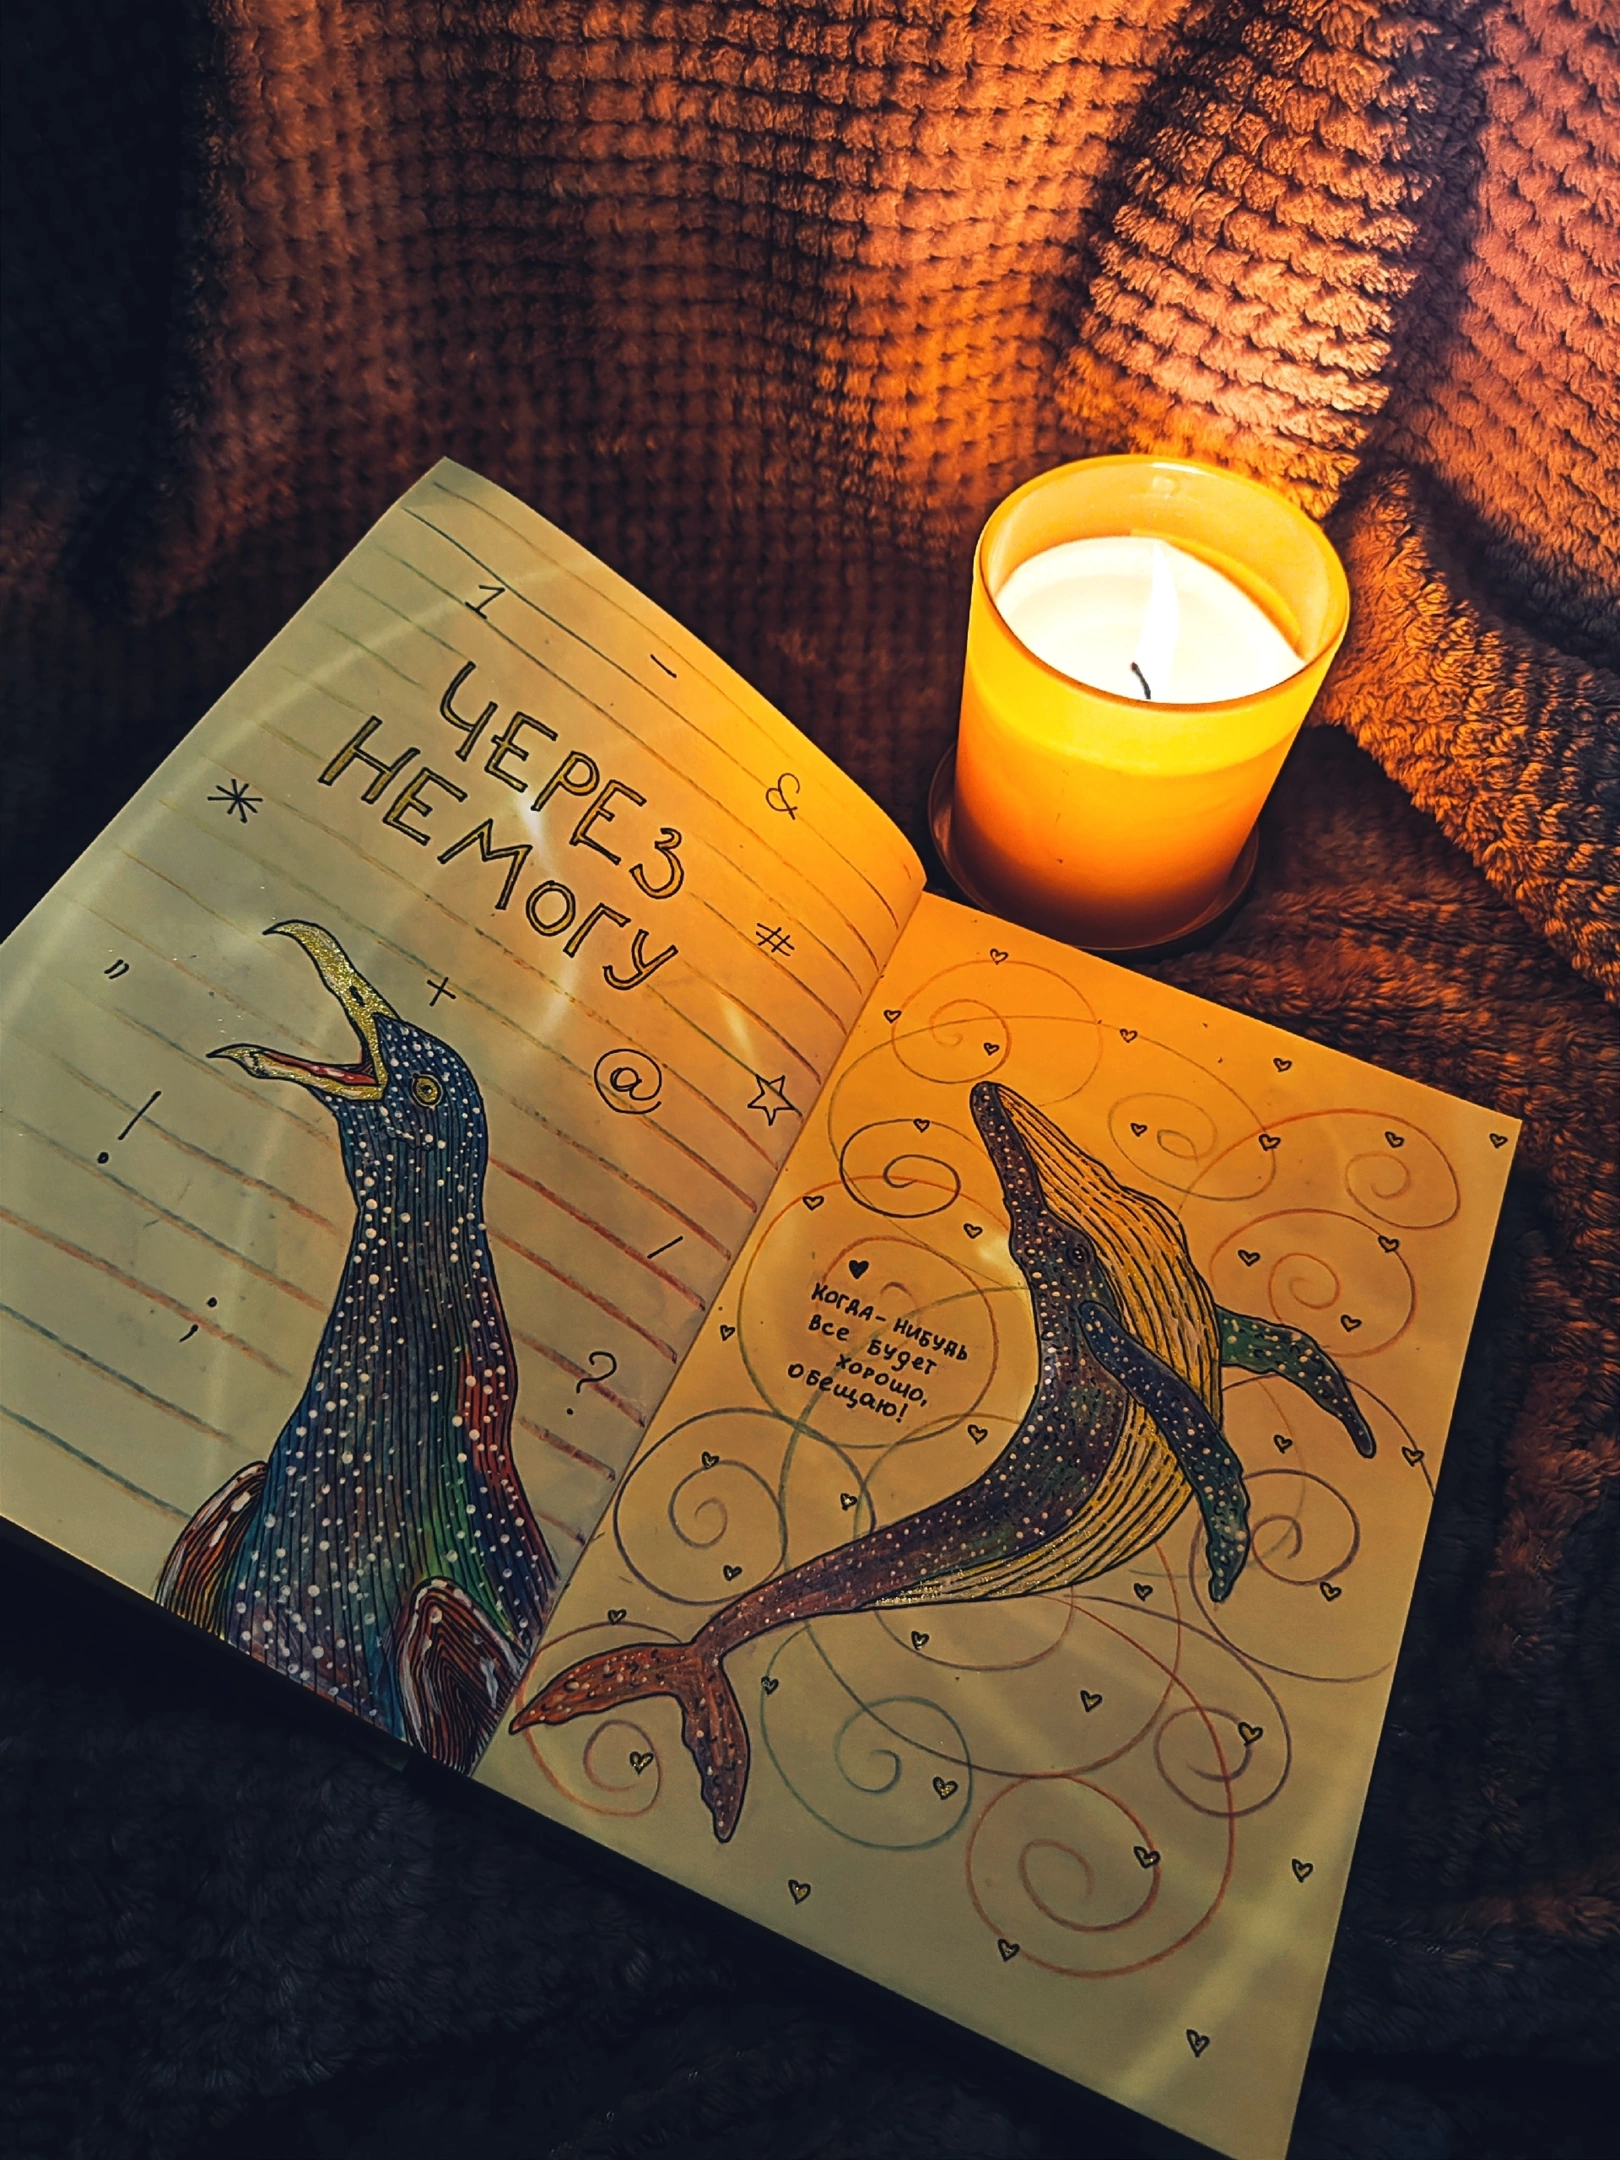 1 -
ЧЕРЕЗ
НЕМОГУ
&
*
#
"
+
@
!
/
;
?
КОГДА-НИБУДЬ
ВСЕ БУДЕТ
ХОРОШО,
ОБЕЩАЮ!